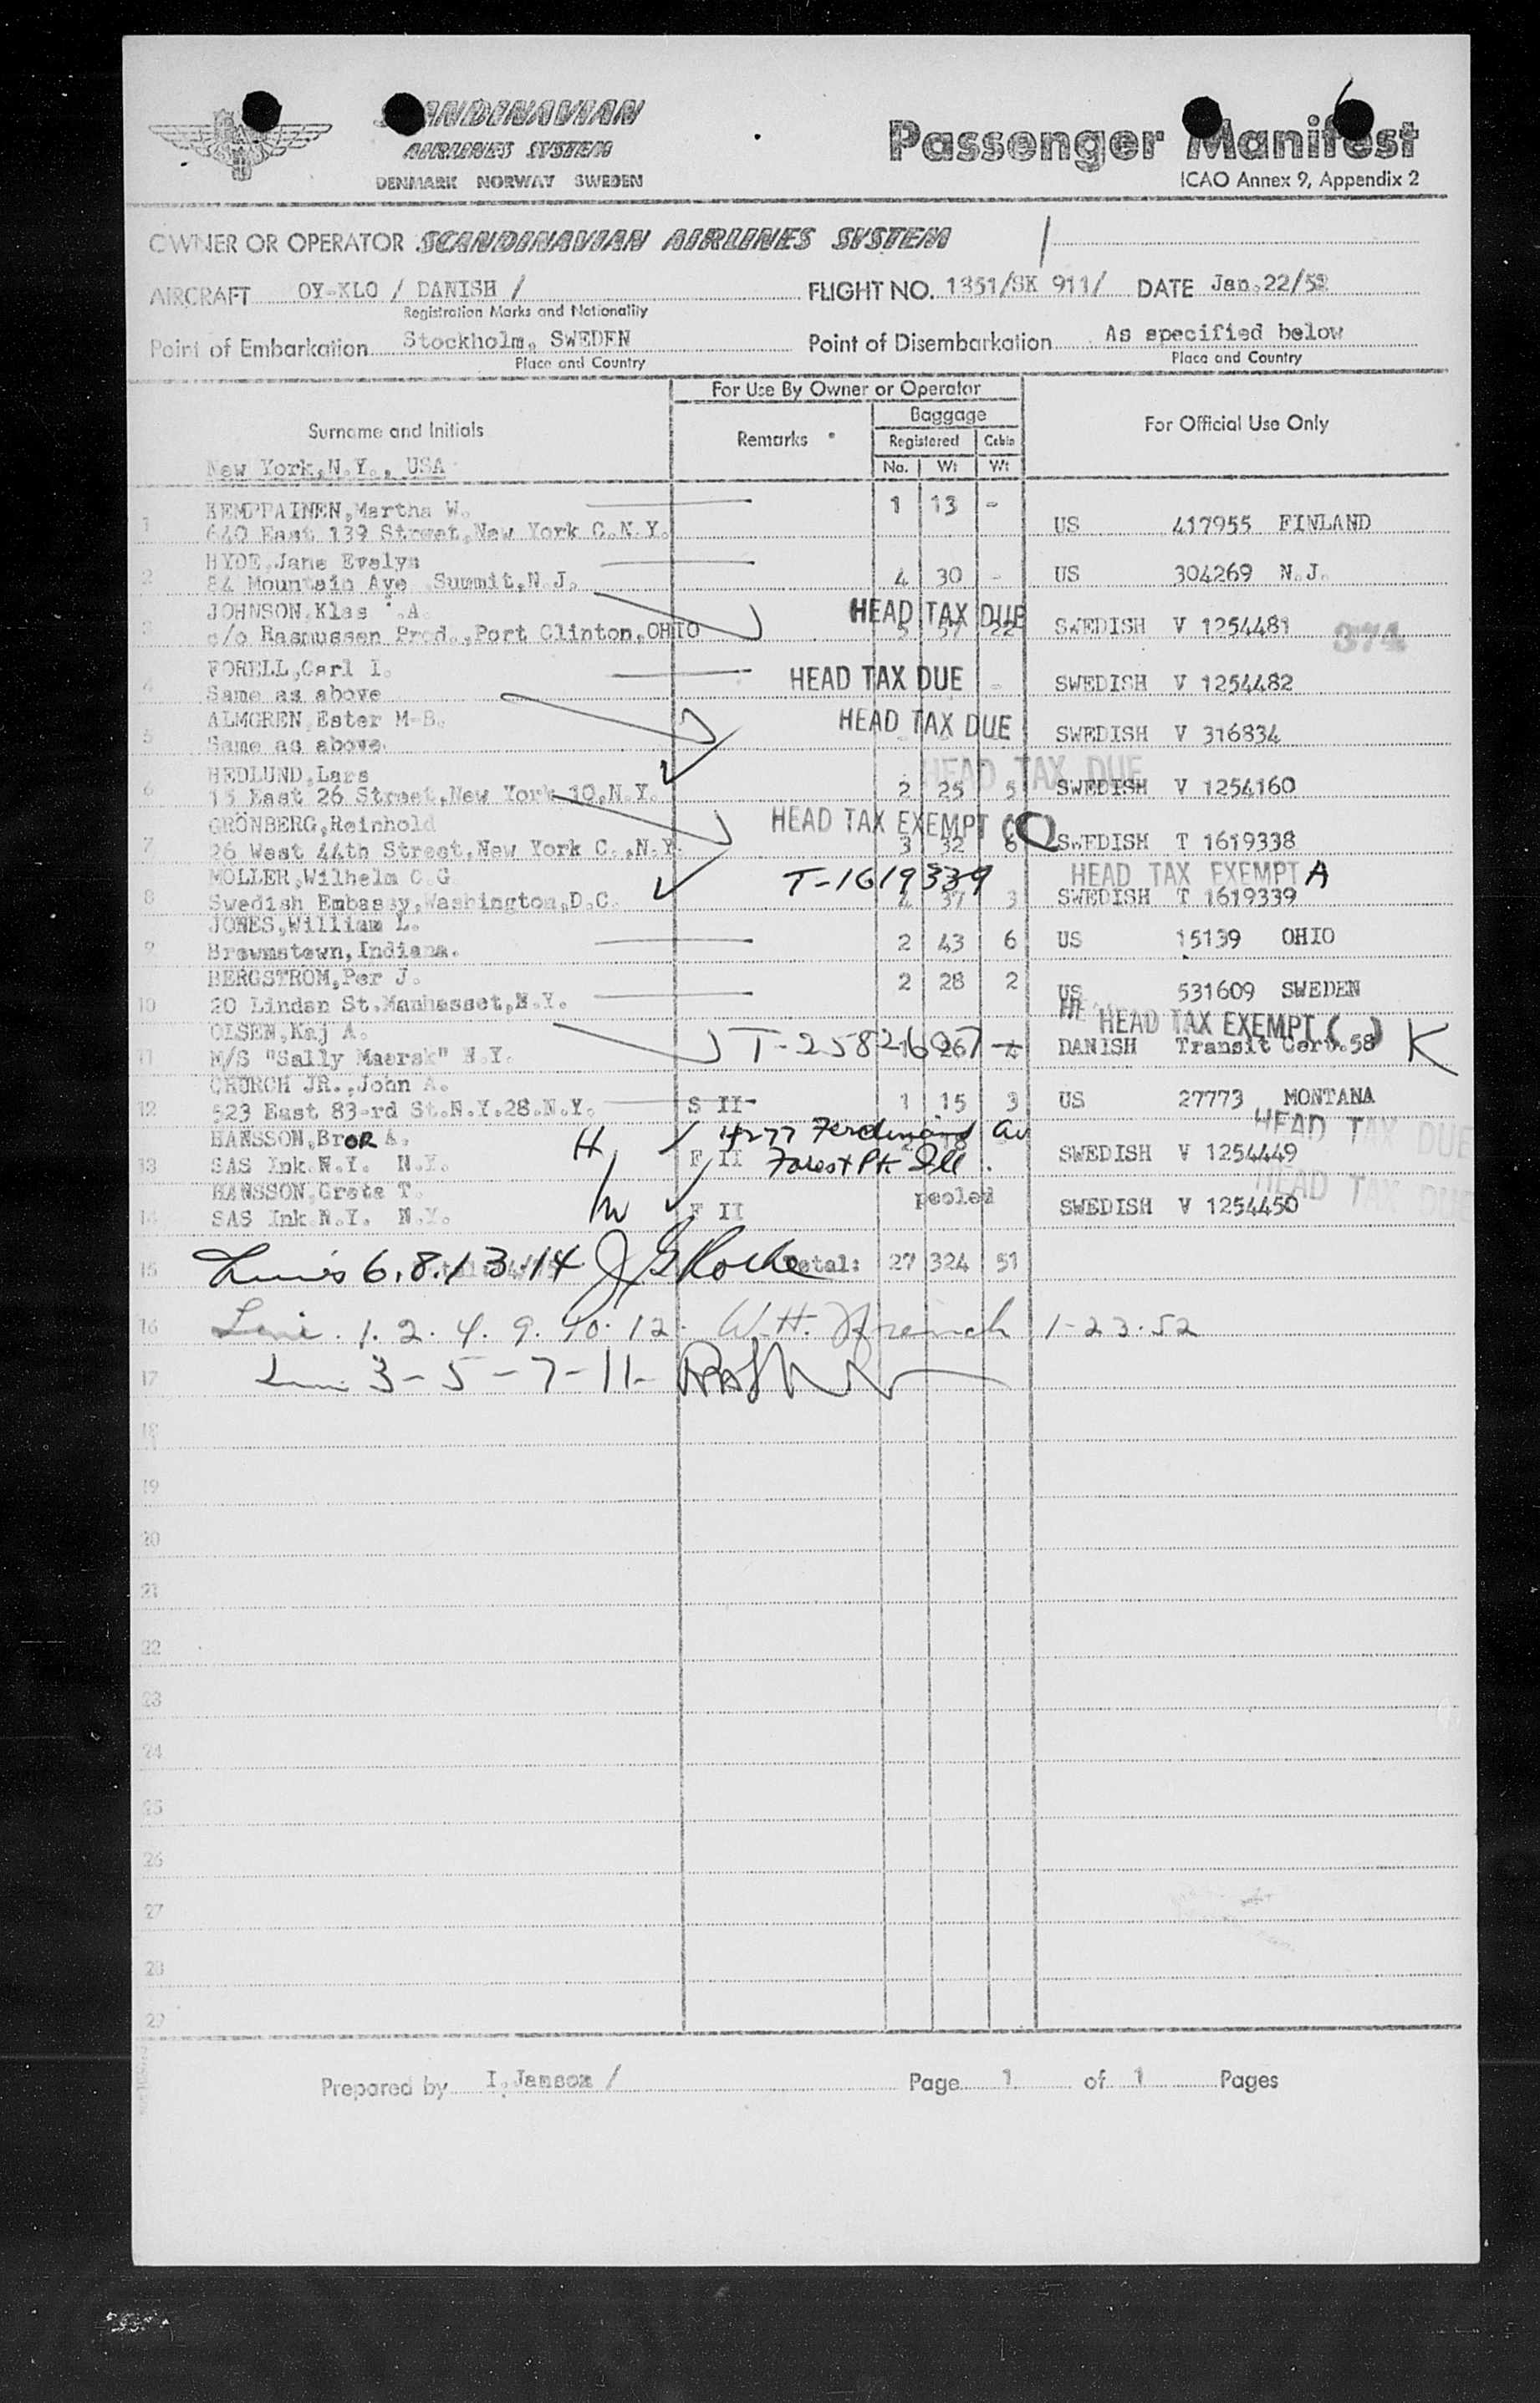 SCANDINAVIAN
AIRLINES SYSTEM
DENMARK NORWAY SWEDEN
Passenger Manifest
ICAO Annex 9, Appendix 2
OWNER OR OPERATOR SCANDINAVIAN AIRLINES SYSTEM
AIRCRAFT OY-KLO / DANISH / FLIGHT NO. 1351/SK 911/ DATE Jan.22/52
Registration Marks and Nationality
Point of Embarkation Stockholm, SWEDEN Point of Disembarkation As specified below
Place and Country Place and Country
For Use By Owner or Operator
Surname and Initials Remarks Baggage For Official Use Only
Registered Cabin
No. Wt Wt
New York,N.Y., USA
KEMPPAINEN,Martha W. 1 13 -
1 640 East 139 Street,New York C.N.Y. US 417955 FINLAND
HYDE,Jane Evelyn
2 84 Mountain Ave Summit,N.J. 4 30 - US 304269 N.J.
JOHNSON,Klas .A. HEAD TAX DUE
3 c/o Rasmussen Prod.,Port Clinton,OHIO 5 57 22 SWEDISH V 1254481 374
FORELL,Carl I. HEAD TAX DUE
4 Same as above - SWEDISH V 1254482
ALMGREN,Ester M-B. HEAD TAX DUE
5 Same as above. SWEDISH V 316834
HEDLUND,Lars HEAD TAX DUE
6 15 East 26 Street,New York 10,N.Y. 2 25 5 SWEDISH V 1254160
GRÖNBERG,Reinhold HEAD TAX EXEMPT
7 26 West 44th Street,New York C.,N.Y. 3 32 6 SWEDISH T 1619338
MOLLER,Wilhelm C.G T-1619339 HEAD TAX EXEMPT A
8 Swedish Embassy,Washington,D.C. 4 37 3 SWEDISH T 1619339
JONES,William L.
9 Brownstown,Indiana. 2 43 6 US 15139 OHIO
BERGSTROM,Per J. 2 28 2
10 20 Linden St.Manhasset,N.Y. US 531609 SWEDEN
OLSEN,Kaj A. HEAD TAX EXEMPT ( )
11 M/S "Sally Maersk" N.Y. T-2582607 1 26 DANISH Transit Cert.58 K
CHURCH JR.,John A.
12 523 East 83-rd St.N.Y.28.N.Y. S II 1 15 3 US 27773 MONTANA
HANSSON,BrOR A. H 4277 Ferdinand Av HEAD TAX DUE
13 SAS Ink.N.Y. N.Y. F II Forest Pk Ill. SWEDISH V 1254449
HANSSON,Grete T. pooled HEAD TAX DUE
14 SAS Ink.N.Y. N.Y. F II SWEDISH V 1254450
15 6.8.13.14 Total: 27 324 51
16 1. 2. 4. 9. 10. 12. W.H. 1-23-52
17 3-5-7-11-
18
19
20
21
22
23
24
25
26
27
28
29
Prepared by I.Janson / Page 1 of 1 Pages